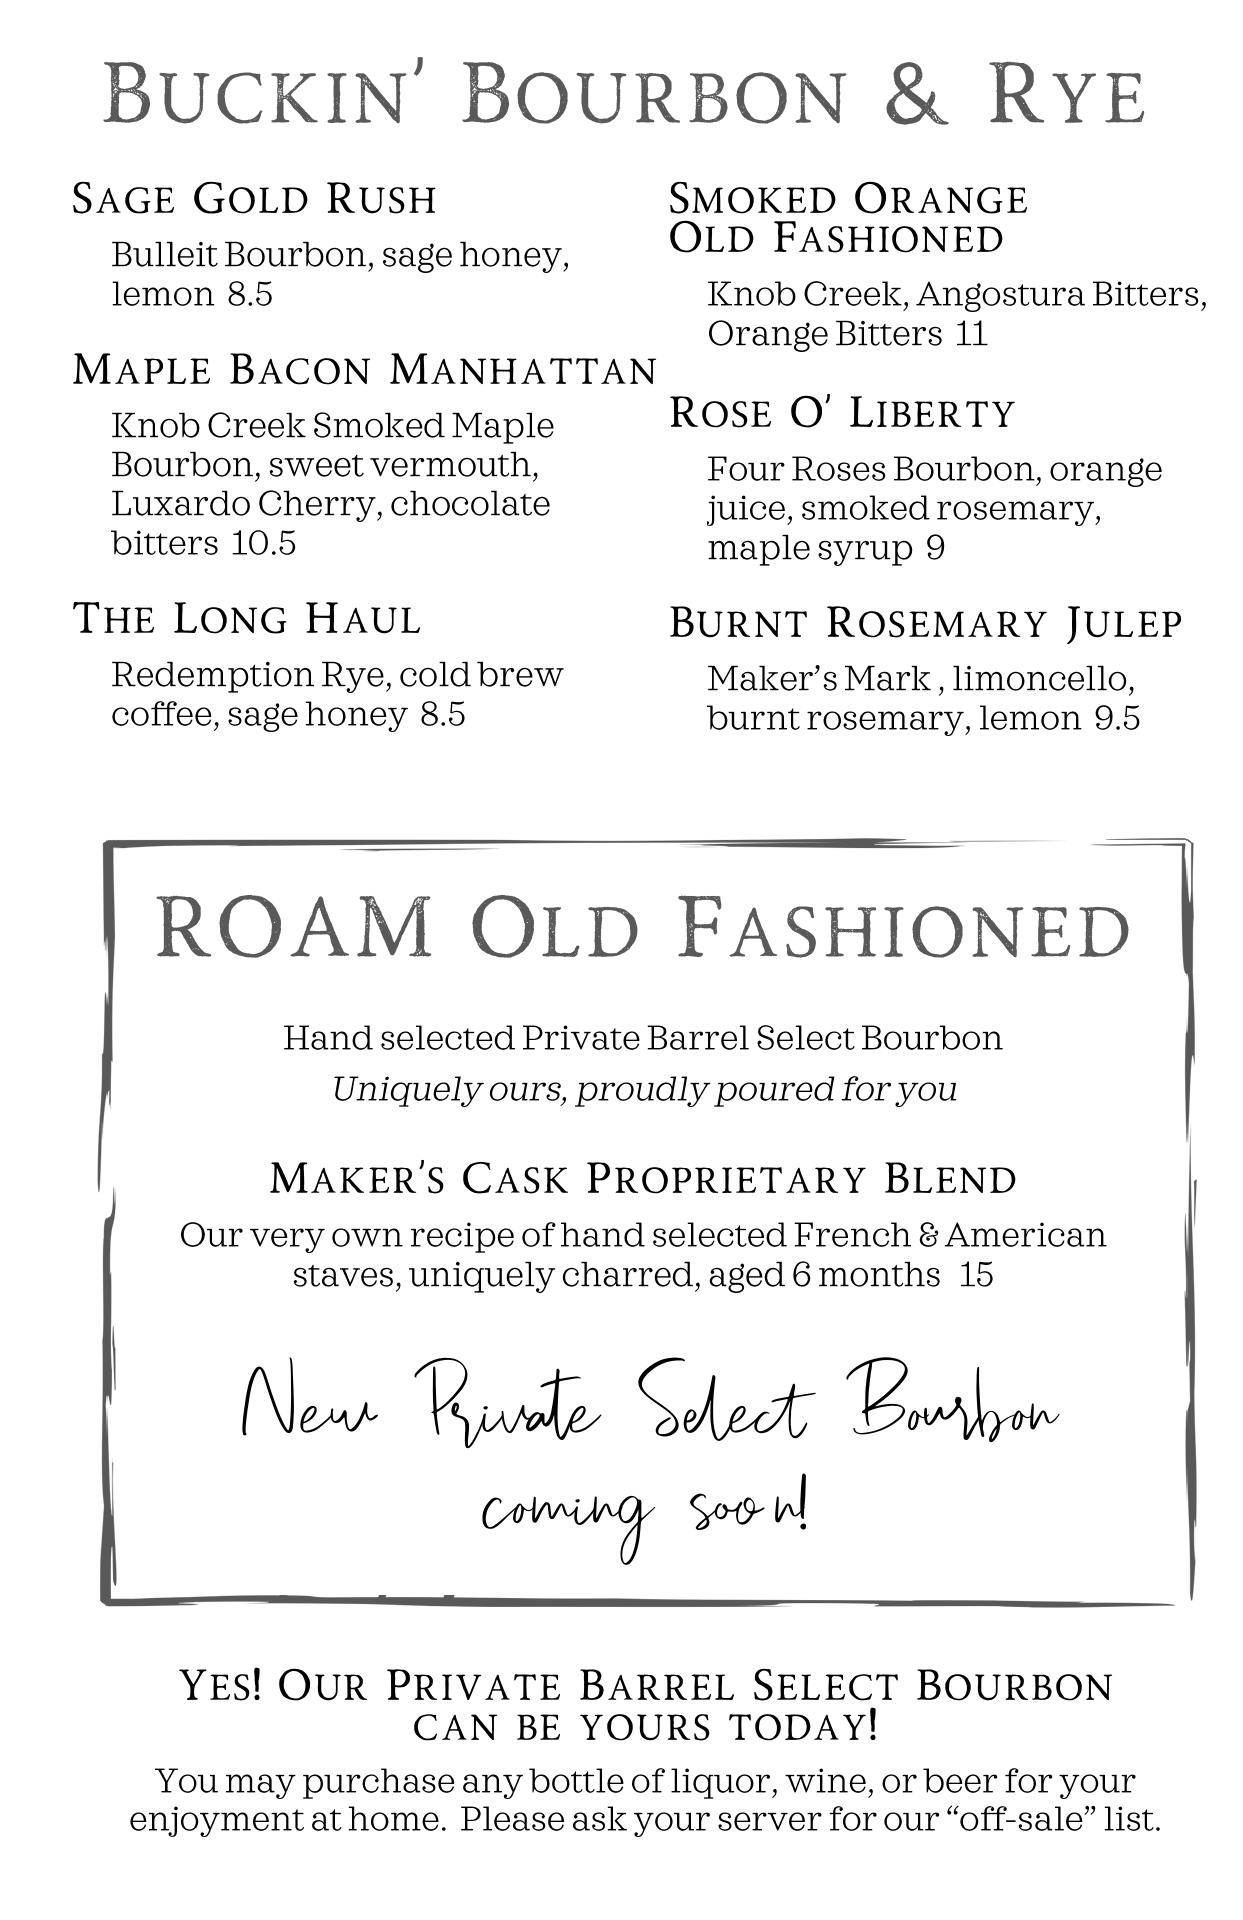 Buckin' Bourbon & Rye
Sage Gold Rush
Bulleit Bourbon, sage honey,
lemon 8.5
Maple Bacon Manhattan
Knob Creek Smoked Maple
Bourbon, sweet vermouth,
Luxardo Cherry, chocolate
bitters 10.5
The Long Haul
Redemption Rye, cold brew
coffee, sage honey 8.5
Smoked Orange
Old Fashioned
Knob Creek, Angostura Bitters,
Orange Bitters 11
Rose O' Liberty
Four Roses Bourbon, orange
juice, smoked rosemary,
maple syrup 9
Burnt Rosemary Julep
Maker's Mark , limoncello,
burnt rosemary, lemon 9.5
ROAM Old Fashioned
Hand selected Private Barrel Select Bourbon
Uniquely ours, proudly poured for you
Maker's Cask Proprietary Blend
Our very own recipe of hand selected French & American
staves, uniquely charred, aged 6 months 15
New Private Select Bourbon
coming soon!
Yes! Our Private Barrel Select Bourbon
can be yours today!
You may purchase any bottle of liquor, wine, or beer for your
enjoyment at home. Please ask your server for our "off-sale" list.